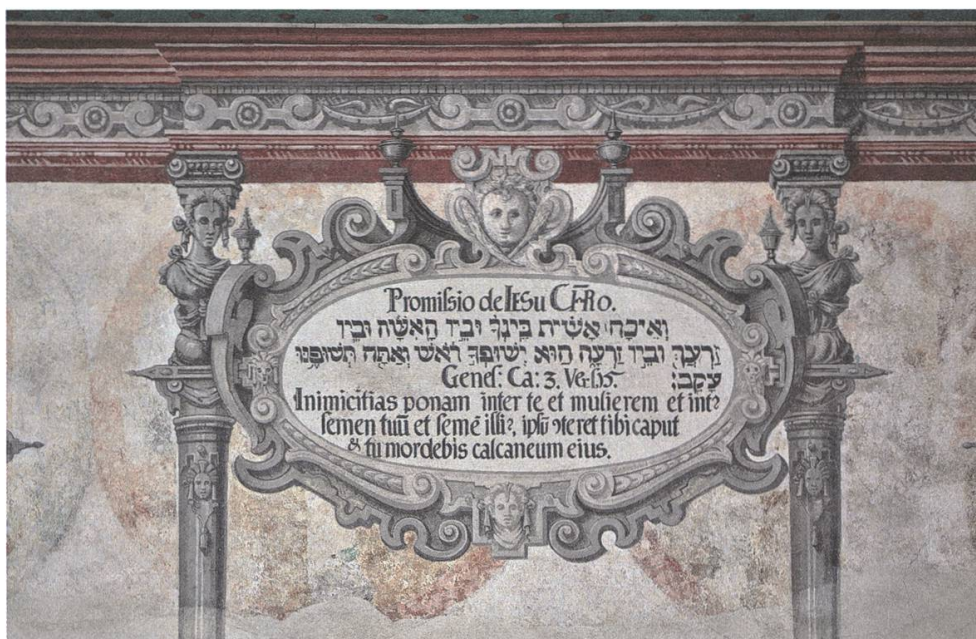 Promissio de IESu CHRO.
וְאֵיבָה׀ אָשִׁית בֵּינְךָ וּבֵין הָאִשָּׁה וּבֵין
זַרְעֲךָ וּבֵין זַרְעָהּ הוּא יְשׁוּפְךָ רֹאשׁ וְאַתָּה תְּשׁוּפֶנּוּ
Genes: Ca: 3. Vers15. עָקֵב:
Inimicitias ponam inter te et mulierem et int
semen tuū et semē illiꝰ, ipsū ꝯteret tibi caput
& tu mordebis calcaneum eius.